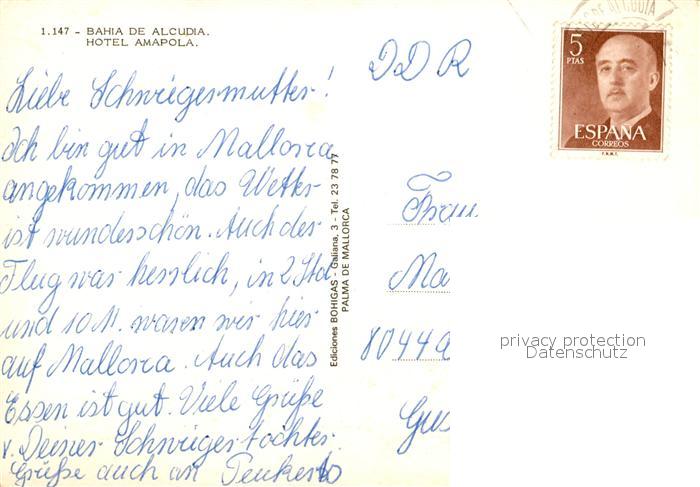 1.147 - BAHIA DE ALCUDIA.
HOTEL AMAPOLA.
Liebe Schwiegermutter!
Ich bin gut in Mallorca
angekommen, das Wetter
ist wunderschön. Auch der
Flug war herrlich, in 2 Std.
und 10 M. waren wir hier
auf Mallorca. Auch das
Essen ist gut. Viele Grüße
v. Deiner Schwiegertochter.
Grüße auch an
Ediciones BOHIGAS - Galiana, 3 - Tel. 23 78 77
PALMA DE MALLORCA
DDR
Frau
Ma
8044
5
PTAS
ESPAÑA
CORREOS
F.N.M.T.
privacy protection
Datenschutz